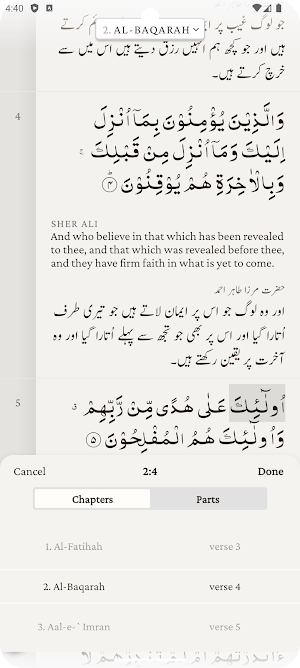 4:40
جو لوگ غیب پر
2. AL-BAQARAH
ہیں اور جو کچھ ہم انہیں رزق دیتے ہیں اس میں سے
خرچ کرتے ہیں۔
4
وَالَّذِيْنَ يُؤْمِنُوْنَ بِمَآ اُنْزِلَ
اِلَيْكَ وَمَآ اُنْزِلَ مِنْ قَبْلِكَ ۚ
وَبِالْاٰخِرَةِ هُمْ يُوْقِنُوْنَ ﴿۴﴾
SHER ALI
And who believe in that which has been revealed
to thee, and that which was revealed before thee,
and they have firm faith in what is yet to come.
حضرت مرزا طاہر احمد
اور وہ لوگ جو اس پر ایمان لاتے ہیں جو تیری طرف
اُتارا گیا اور اس پر بھی جو تجھ سے پہلے اُتارا گیا اور وہ
آخرت پر یقین رکھتے ہیں۔
5
اُولٰٓئِكَ عَلٰى هُدًى مِّنْ رَّبِّهِمْ ۙ
وَاُولٰٓئِكَ هُمُ الْمُفْلِحُوْنَ ﴿۵﴾
Cancel 2:4 Done
Chapters Parts
1. Al-Fatihah verse 3
2. Al-Baqarah verse 4
3. Aal-e-`Imran verse 5